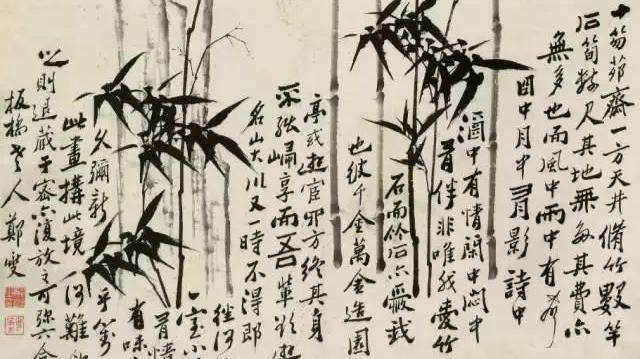 十笏茆齋一方天井脩竹數竿
石筍數尺其地無多其費亦
無多也而風中雨中有聲
日中月中有影詩中
酒中有情閑中悶中
有伴非唯我愛竹
石而竹石亦愛我
也彼千金萬金造園
亭或遊宦四方終其身
不能歸享而吾輩欲遊
名山大川又一時不得即
往何
一室小
有情
有味
久彌新
乎對
此畫構此境何難
之則退藏于密亦復放之可彌六合
板橋老人鄭燮